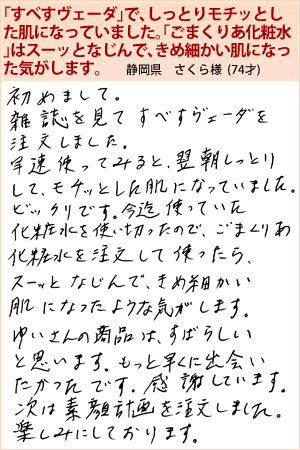 「すべすヴェーダ」で、しっとりモチッとし
た肌になっていました。「ごまくりあ化粧水
」はスーッとなじんで、きめ細かい肌になっ
た気がします。　静岡県　さくら様 (74才)
初めまして。
雑誌を見てすべすヴェーダを
注文しました。
早速使ってみると、翌朝しっとり
して、モチッとした肌になっていました。
ビックリです。今迄使っていた
化粧水を使い切ったので、ごまくりあ
化粧水を注文して使ったら、
スーッとなじんで、きめ細かい
肌になったような気がします。
ゆいさんの商品は、すばらしい
と思います。もっと早くに出会い
たかったです。感謝しています。
次は素顔計画を注文しました。
楽しみにしております。